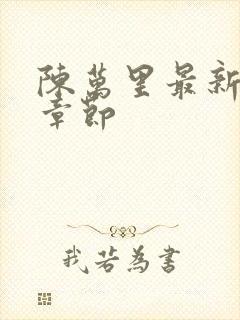 陳萬里最新
章節
我若為書